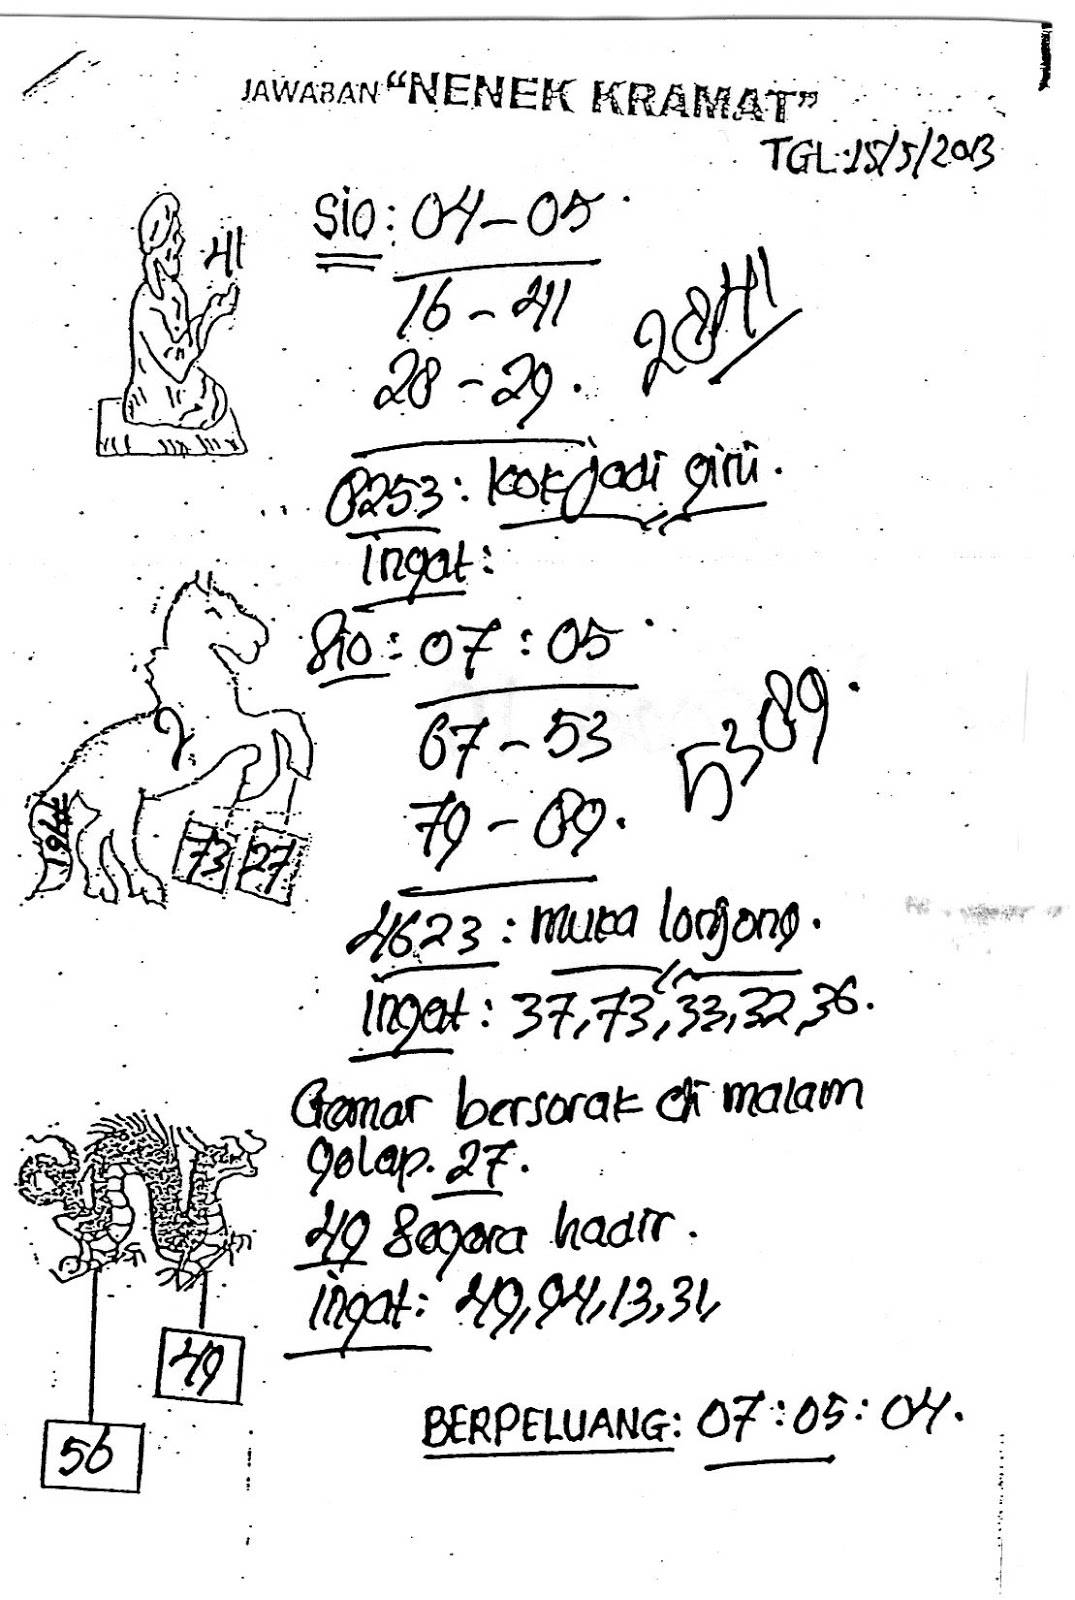 JAWABAN "NENEK KRAMAT"
TGL:15/5/2013
41
Sio: 04-05
16-41
28-29.
2841
0253: kok jadi giri.
ingat:
Sio: 07:05
67-53
79-89.
5389.
2
1964
73 27
4623: muka lonjong.
ingat: 37,73,33,32,36.
Gemar bersorak di malam
gelap. 27.
49 Segera hadir.
ingat: 49,94,13,31,
49
56
BERPELUANG: 07:05:04.